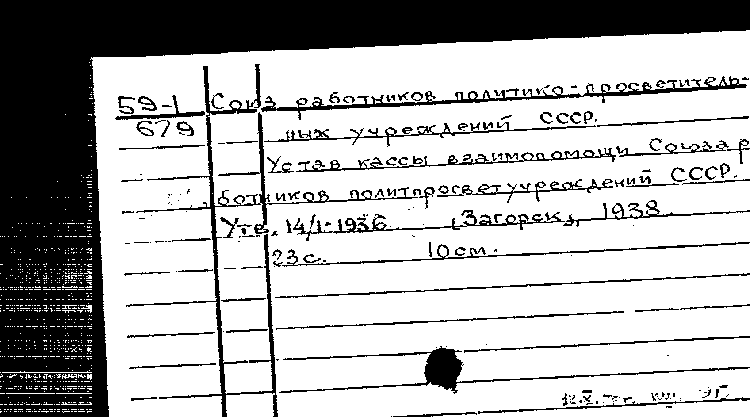 59-1 Союз работников политико-просветитель-
679 ных учреждений СССР.
Устав кассы взаимопомощи Союза р
ботников политпросветучреждений СССР.
Утв. 14/I-1936 [Загорск], 1938.
23 с. 10 см.